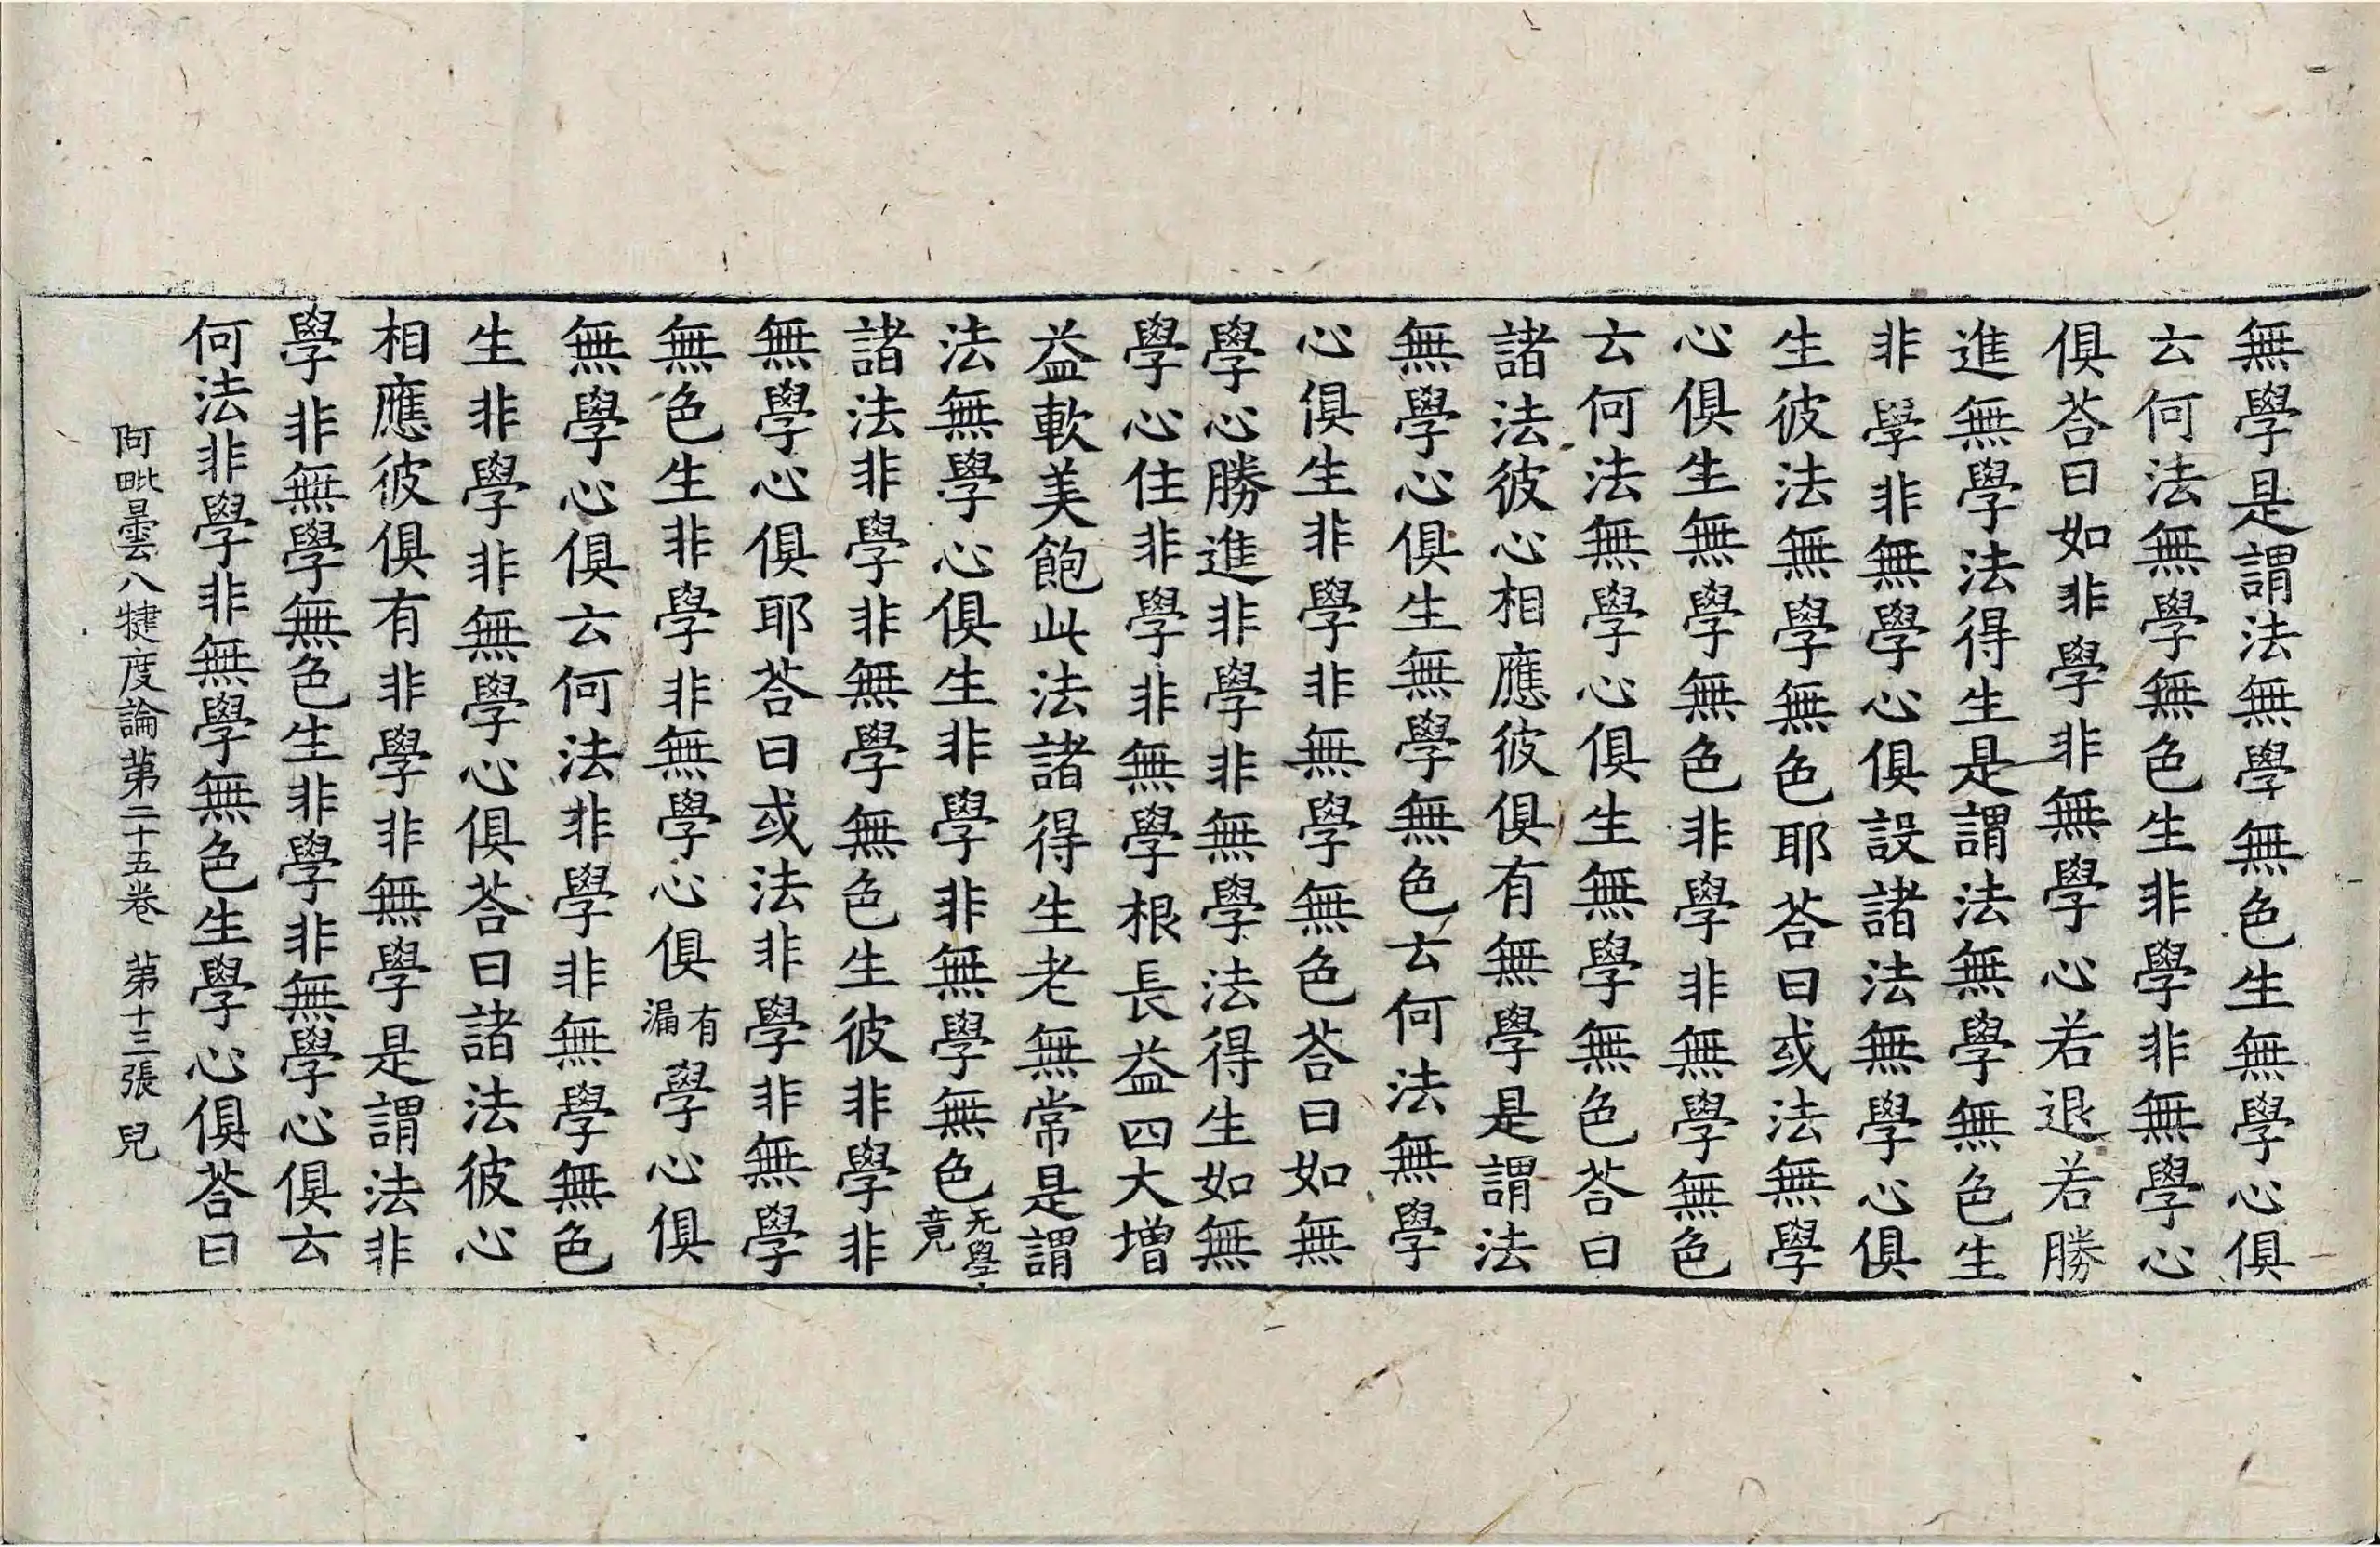 無學是謂法無學無色生無學心俱
云何法無學無色生非學非無學心
俱荅曰如非學非無學心若退若勝
進無學法得生是謂法無學無色生
非學非無學心俱設諸法無學心俱
生彼法無學無色耶荅曰或法無學
心俱生無學無色非學非無學無色
云何法無學心俱生無學無色荅曰
諸法彼心相應彼俱有無學是謂法
無學心俱生無學無色云何法無學
心俱生非學非無學無色荅曰如無
學心勝進非學非無學法得生如無
學心住非學非無學根長益四大增
益軟美飽此法諸得生老無常是謂
法無學心俱生非學非無學無色无學竟
諸法非學非無學無色生彼非學非
無學心俱耶荅曰或法非學非無學
無色生非學非無學心俱有漏學心俱
無學心俱云何法非學非無學無色
生非學非無學心俱荅曰諸法彼心
相應彼俱有非學非無學是謂法非
學非無學無色生非學非無學心俱云
何法非學非無學無色生學心俱荅曰
阿毗曇八犍度論苐二十五卷 苐十三張 兒